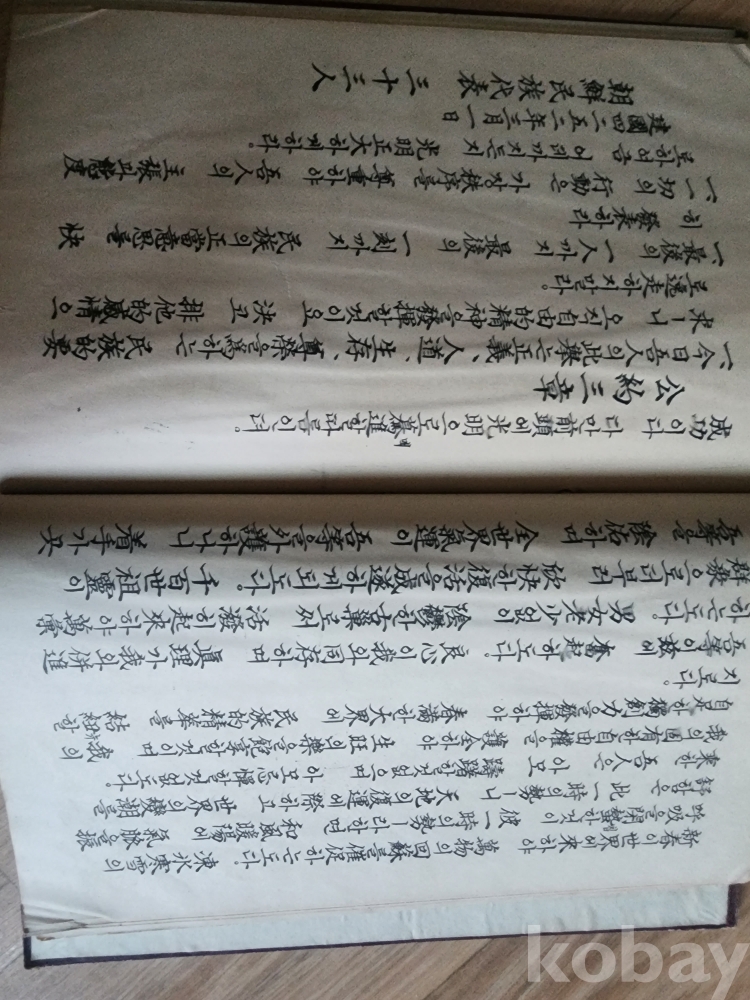 新春이 世界에 來하야 萬物의 回蘇를 催促하는도다. 凍氷寒雪의
呼吸을 閉蟄한것이 彼一時의 勢ㅣ라하면 和風暖陽에 氣脈을 振
舒함은 此一時의 勢ㅣ니 天地의 復運에 際하고 世界의 變潮를
乘한 吾人은 아모 躊躇할것없으며 아모 忌憚할것없도다.
我의 固有한 自由權을 護全하야 生旺의 樂을 飽享할것이며 我의
自足한 獨創力을 發揮하야 春滿한 大界에 民族的精華를 結紐할
지로다.
吾等이 玆에 奮起하도다. 良心이 我와同存하며 眞理가 我와併進
하는도다. 男女老少없이 陰鬱한古巢로서 活潑히起來하야 萬彙
群象으로더부러 欣快한復活을成遂하게되도다. 千百世祖靈이
吾等을 陰佑하며 全世界氣運이 吾等을外護하나니 着手가곳
成功이라 다만前頭에光明으로驀進할따름인저.
公約三章
一、今日吾人의此擧는正義、人道、生存、尊榮을爲하는 民族的要
求ㅣ니 오직自由的精神을發揮할것이오 決코 排他的感情으
로逸走하지말라.
一、最後의 一人까지 最後의 一刻까지 民族의正當한意思를 快
히 發表하라
一、一切의 行動은 가장秩序를 尊重하야 吾人의 主張과態度
로하여금 어대까지든지 光明正大하게하라.
建國四二五二年三月一日
朝鮮民族代表 三十三人
kobay